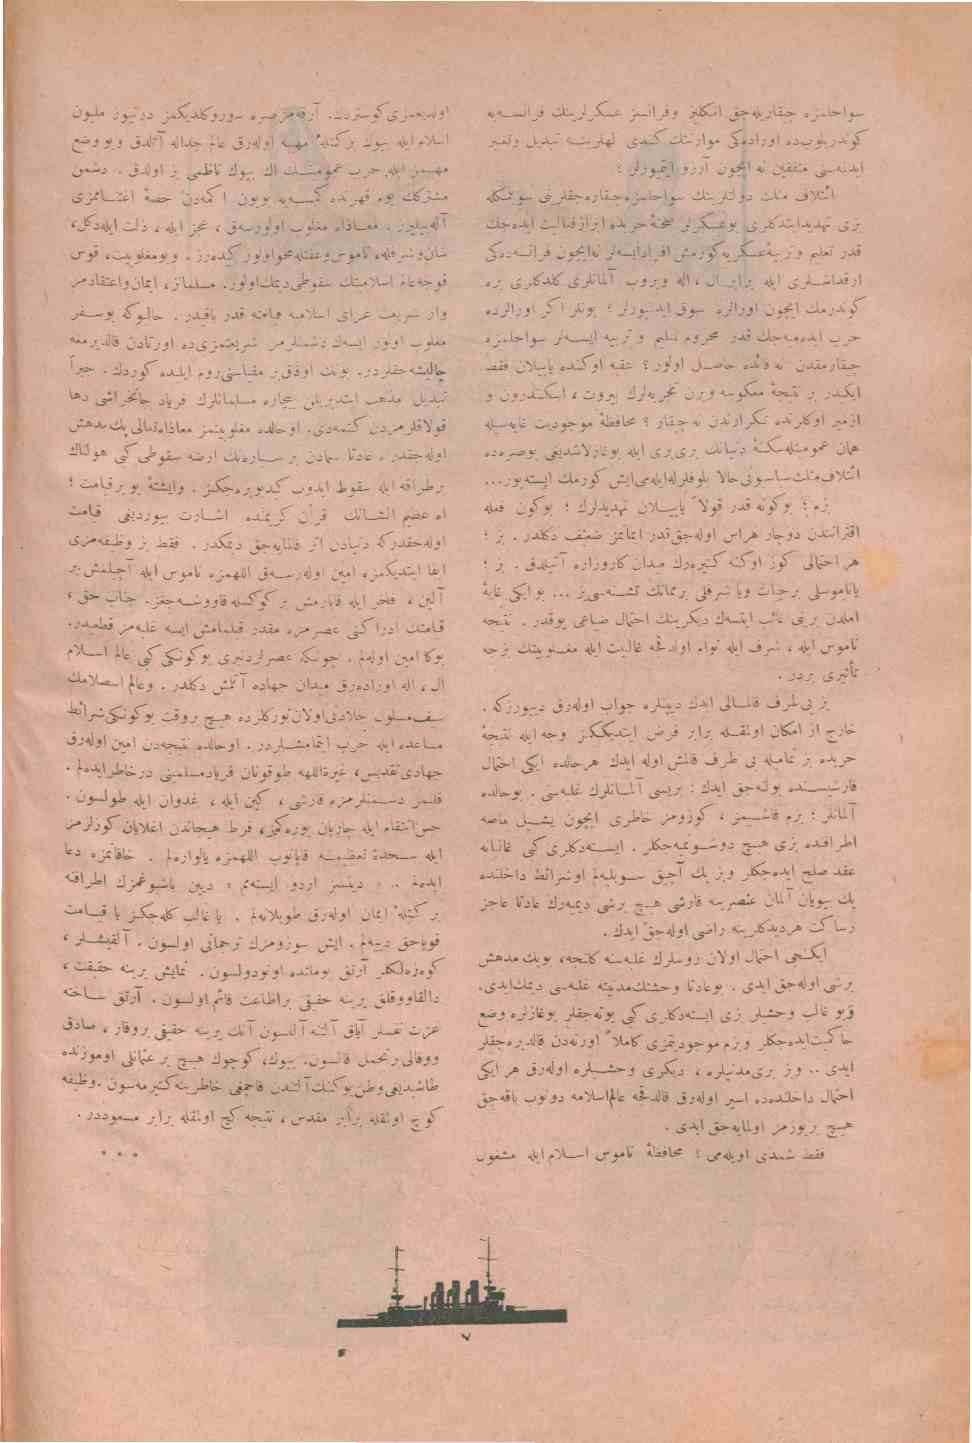 سواحلمزه چیقاریله‌جق انكلیز وفرانسز عسكرلرینك فرانسه‌یه
كوندریلوب‌ده اوراده‌كی موازنتك كندی لهلرینه تبدیل وتغییر
ایدلمه‌سنی متفقین نه ایچون آرزو ایتمیورلر ؟
ائتلاف مثلث دولتلرینك سواحلمزه چیقاره‌جقلرنی سویلمكله
بزی تهدید ایتدكلری بو عسكرلر صحنهٔ حربده ابراز فعالیت ایده‌جك
قدر تعلیم وتربیهٔ عسكریه كورمش افراد ایسه‌لر نه ایچون فرانسه‌ده‌كی
ارقداشلری ایله برابر ال ، اله ویروب آلمانلری كلدكلری یره
كوندرمك ایچون اورالره سوق ایدلمیورلر ؟ بونلر اكر اورالرده
حرب ایده‌میه‌جك قدر محروم تعلیم و تربیه ایسه‌لر سواحلمزه
چیقارمقدن نه فائده حاصل اولور ؟ عقبه اوكنده یاپیلان فقط
ایكندر بر نتیجهٔ معكوسه ویرن تجربه‌لرك بیروت ، اسكندرون و
ازمیر اوكلرنده تكرارندن نه چیقار ؟ محافظهٔ موجودیت غایه‌سیله
همان عمومیتله سكنهٔ دنیانك بری بری ایله بوغازلاشدیغی بو صره‌ده
ائتلاف مثلث سیاسیونی حالا بلوفلرله ایله‌می ایش كورمك ایسته‌یور...
بزم ؛ بوكونه قدر قولاً یاپیلان تهدیدلرك ؛ بوكون فعله
اقترانندن دوچار هراس اوله‌جق قدر ایمانمز ضعیف دكلدر . بز ؛
هر احتمالی كوز اوكنه كتیره‌رك میدان كارزاره آتیلدق . بز ؛
یا ناموسلی برحیات ویا شرفلی بر مماتك تشنه‌سی‌یز ... بو ایكی غایهٔ
املدن برینی غائب ایتسه‌ك دیكرینك احتمال ضیاعی یوقدر . نتیجه
ناموس ایله ، شرف ایله توأم اولدقجه غالبیت ایله مغلوبیتك بزجه
تأثیری بردر .
بز بی طرف قالمالی ایدك دیینلره جواب اوله‌رق دییورزكه .
خارج از امكان اولمقله برابر فرض ایتدیككز وجه ایله نتیجهٔ
حربده بز تمامیله بی طرف قالمش اوله ایدك هر حالده ایكی احتمال
قارشیسنده بولنه‌جق ایدك : بریسی آلمانلرك غلبه‌سی . بو حالده
آلمانلر ؛ بزم قاشیمز ، كوزومز خاطری ایچون یشیل ماصه
اطرافنده بزی هیچ دوشونمیه‌جكلر . ایسته‌دكلری كبی غالبانه
عقد صلح ایده‌جكلر وبز پك آچیق سویله‌یه‌لم اوشرائط داخلنده
پك بیویان آلمان عنصرینه قارشی هیچ برشی دیمیه‌رك عادتا عاجز
وساكت هر دیدكلرینه راضی اوله‌جق ایدك .
ایكنجی احتمال اولان روسلرك غلبه‌سنه كلنجه ، بو پك مدهش
برشی اوله‌جق ایدی . بو عادتا وحشتك مدنیته غلبه‌سی دیمك ایدی.
وبو غالب وحشیلر بزی ایسته‌دكلری كبی بوته‌جقلر بوغازلره وضع
حاكمیت ایده‌جكلر وبزم موجودیتمزی كاملاً اورته‌دن قالدیره‌جقلر
ایدی .. وبز بری مدنیلره ، دیكری وحشیلره اوله‌رق هر ایكی
احتمال داخلنده‌ده اسیر اوله‌رق قالدقجه عالم اسلامه دونوب باقه‌جق
هیچ بر یوزمز اولمایه‌جق ایدی .
فقط شمدی اویله‌می ؟ محافظهٔ ناموس اسلام ایله مشغول
اولدیغمزی كوستردك . آرقه‌مز صره سوروكلدیكمز درتیوز ملیون
اسلام ایله بیوك بر كتلهٔ مهیبه اوله‌رق عالم جداله آتلدق و بو وضع
مهیبمز ایله حرب عمومینك اك بیوك ناظمی بز اولدق . دشمن
مشتركك یوم قهرنده كیسه‌یه بویون اكمه‌دن حصهٔ اغتنامزی
آله‌بیلیرز . معاذالله مغلوب اولورسه‌ق ، عجز ایله ، ذلت ایله دكل،
شان و شرفله، ناموس وعفتله محو اولور كیده‌رز . وبو مغلوبیت، قوس
قوجه عالم اسلامیتك سقوطی دیمك اولور. مسلمانز، ایمان واعتقادمز
وار شریعت غرای اسلامیه قیامته قدر باقیدر . حالبوكه بو سفر
مغلوب اولور ایسه‌ك دشمنلرمز شریعتمزی‌ده اورتادن قالدیرمغه
چالیشه‌جقلردر. بونك اوفق بر مقیاسنی روم ایلنده كوردك . جبراً
تبدیل مذهب ایتدیریلن بیچاره مسلمانلرك فریاد جانخراشی دها
قولاقلرمزدن كیتمه‌دی. او حالده مغلوبیتمز معاذالله تعالی پك مدهش
اوله‌جقدر ، عادتا سمادن بر سیاره‌نك ارضه سقوطی كبی هولناك
بر طراقه ایله سقوط ایدوب كیدیویره‌جكز . وایشته بو بر قیامت ؛
اه عظیم الشانك قرآن كریمنده اشارت بیوردیغی قیامت
اوله‌جقدركه دنیادن اثر قالمایه‌جق دیمكدر . فقط بز وظیفه‌مزی
ایفا ایتدیكمزه امین اوله‌رسه‌ق اللهمزه ناموس ایله آچیلمش بر
آلین ، فخر ایله قابارمش بر كوكسله قاووشه‌جغز. جناب حق ،
قیامتك ادراكنی عصرمزه مقدر قیلمامش ایسه غلبه‌مز قطعیدر،
بوكا امین اوله‌لم . چونكه عصرلردنبری بوكونكی كبی عالم اسلام
ال ، اله اوراده‌رق میدان جهاده آتلمش دكلدر . وعالم اسلامك
سیف مسلول جلادتی اولان توركلرده هیچ بر وقت بوكونكی شرائط
مساعده ایله حرب ایتمامشلردر . او حالده نتیجه‌دن امین اوله‌رق
جهادی تقدیس، غیرةالله طوقونان فریاد مسلمینی در خاطر ایده‌لم .
قلبمز دشمنلرمزه قارشی ، كین ایله ، عدوان ایله طولسون .
حس انتقام ایله چارپان یوره‌كمز، فرط هیجاندن اغلایان كوزلرمز
ایله سجدهٔ تعظیمنه قپانوب اللهمزه یالواره‌لم . خاقانمزه دعا
ایده‌لم .. « دینسز اردو ایسته‌مم » دیین باشبوغمزك اطرافنه
بر كتلهٔ ایمان اوله‌رق طوپلانه‌لم . یا غالب كله‌جكز یا قیامت
قوپاجق دییه‌لم . ایش سوزومزك ترجمانی اولسون . آلقیشلر ،
كوه‌زه‌لكلر آرتق بوماننده اونودولسون . نمایش یرینه حقیقت ،
دالقاووقلق یرینه حقیقی بر اطاعت قائم اولسون . آرتق ساخته
عزت نفسلر ایاق آلتنه آلنسون آنك یرینه حقیقی بر وقار ، صادق
ووفالی بر تحمل قالسون. بیوك، كوچوك هیچ بر عثمانلی اوموزنده
طاشیدیغی وطن یوكنك آلتندن قاچمغی خاطرینه كتیرمه‌سون. وظیفه
كوچ اولمقله برابر مقدس ، نتیجه كچ اولمقله برابر مسعوددر .
* * *
٧